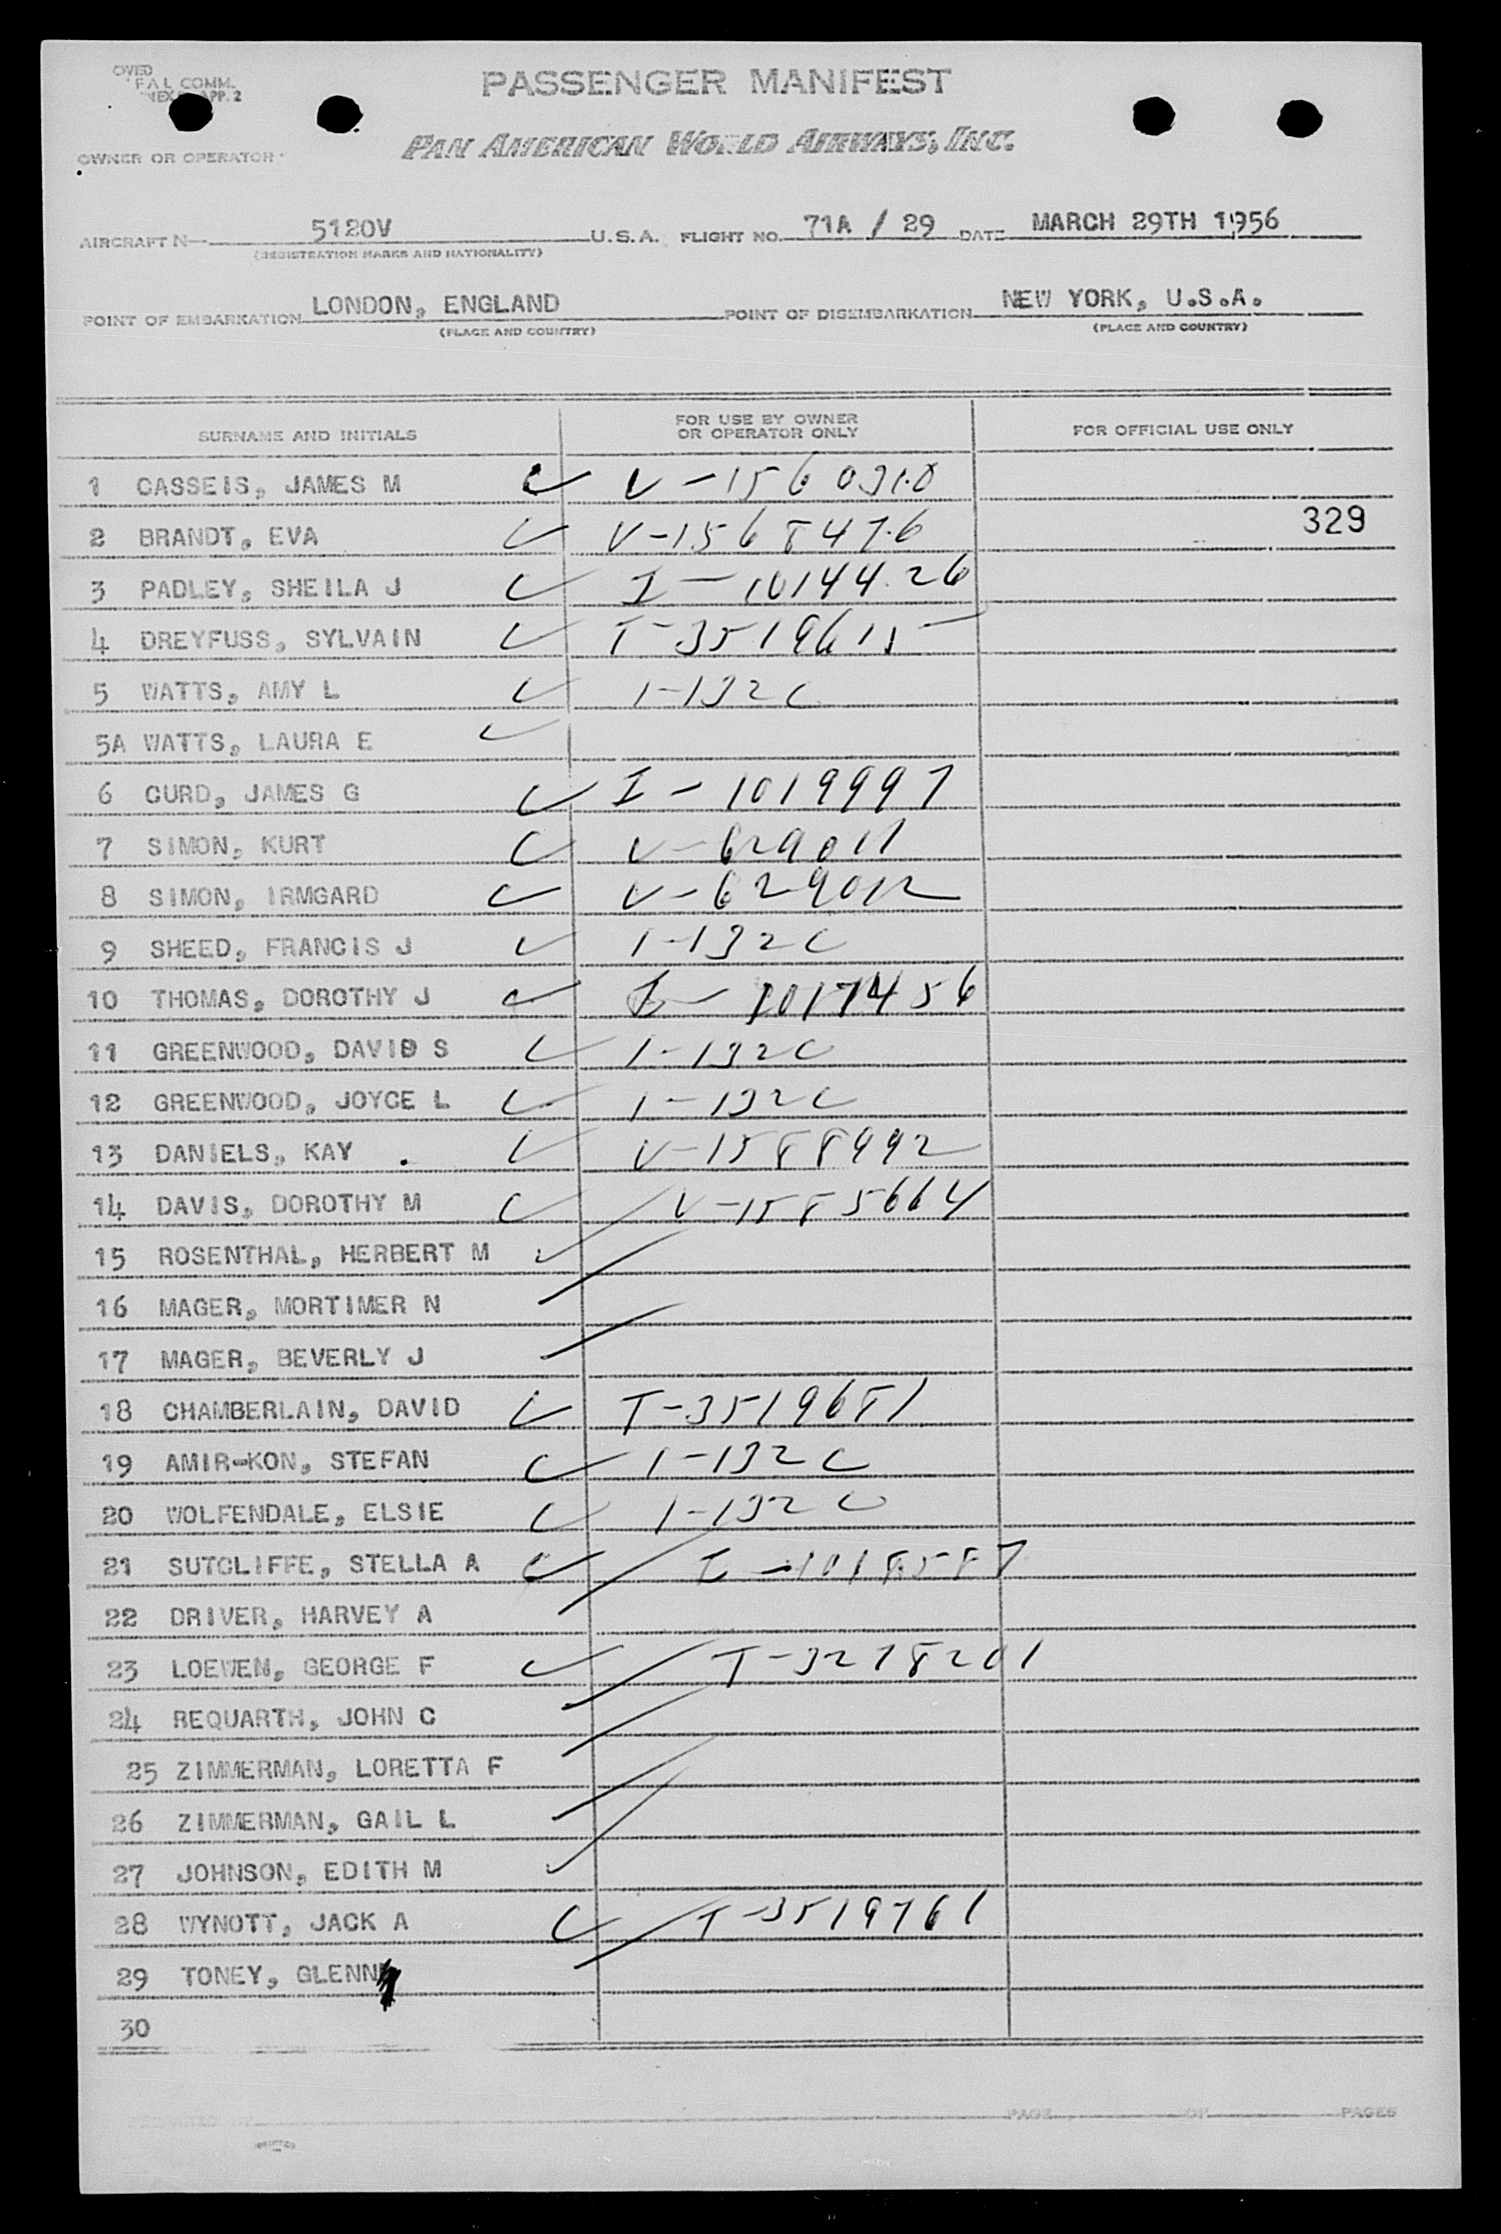 OVED
F A L COMM.
APP. 2
PASSENGER MANIFEST
OWNER OR OPERATOR
PAN AMERICAN WORLD AIRWAYS, INC.
AIRCRAFT N— 5120V U.S.A. FLIGHT NO. 71A / 29 DATE MARCH 29TH 1956
(REGISTRATION MARKS AND NATIONALITY)
POINT OF EMBARKATION LONDON, ENGLAND POINT OF DISEMBARKATION NEW YORK, U.S.A.
(PLACE AND COUNTRY) (PLACE AND COUNTRY)
SURNAME AND INITIALS FOR USE BY OWNER OR OPERATOR ONLY FOR OFFICIAL USE ONLY
1 CASSEIS, JAMES M
2 BRANDT, EVA V-1568476 329
3 PADLEY, SHEILA J I-1014426
4 DREYFUSS, SYLVAIN T-3519615
5 WATTS, AMY L 1-132C
5A WATTS, LAURA E
6 CURD, JAMES G I-1019997
7 SIMON, KURT V-629011
8 SIMON, IRMGARD V-629012
9 SHEED, FRANCIS J 1-132C
10 THOMAS, DOROTHY J I-1017456
11 GREENWOOD, DAVID S 1-132C
12 GREENWOOD, JOYCE L 1-132C
13 DANIELS, KAY . V-1588992
14 DAVIS, DOROTHY M V-1585664
15 ROSENTHAL, HERBERT M
16 MAGER, MORTIMER N
17 MAGER, BEVERLY J
18 CHAMBERLAIN, DAVID T-3519681
19 AMIR-KON, STEFAN 1-132C
20 WOLFENDALE, ELSIE 1-132C
21 SUTCLIFFE, STELLA A I-1018587
22 DRIVER, HARVEY A
23 LOEWEN, GEORGE F T-3278201
24 REQUARTH, JOHN C
25 ZIMMERMAN, LORETTA F
26 ZIMMERMAN, GAIL L
27 JOHNSON, EDITH M
28 WYNOTT, JACK A T-3519761
29 TONEY, GLENN
30
PAGE OF PAGES